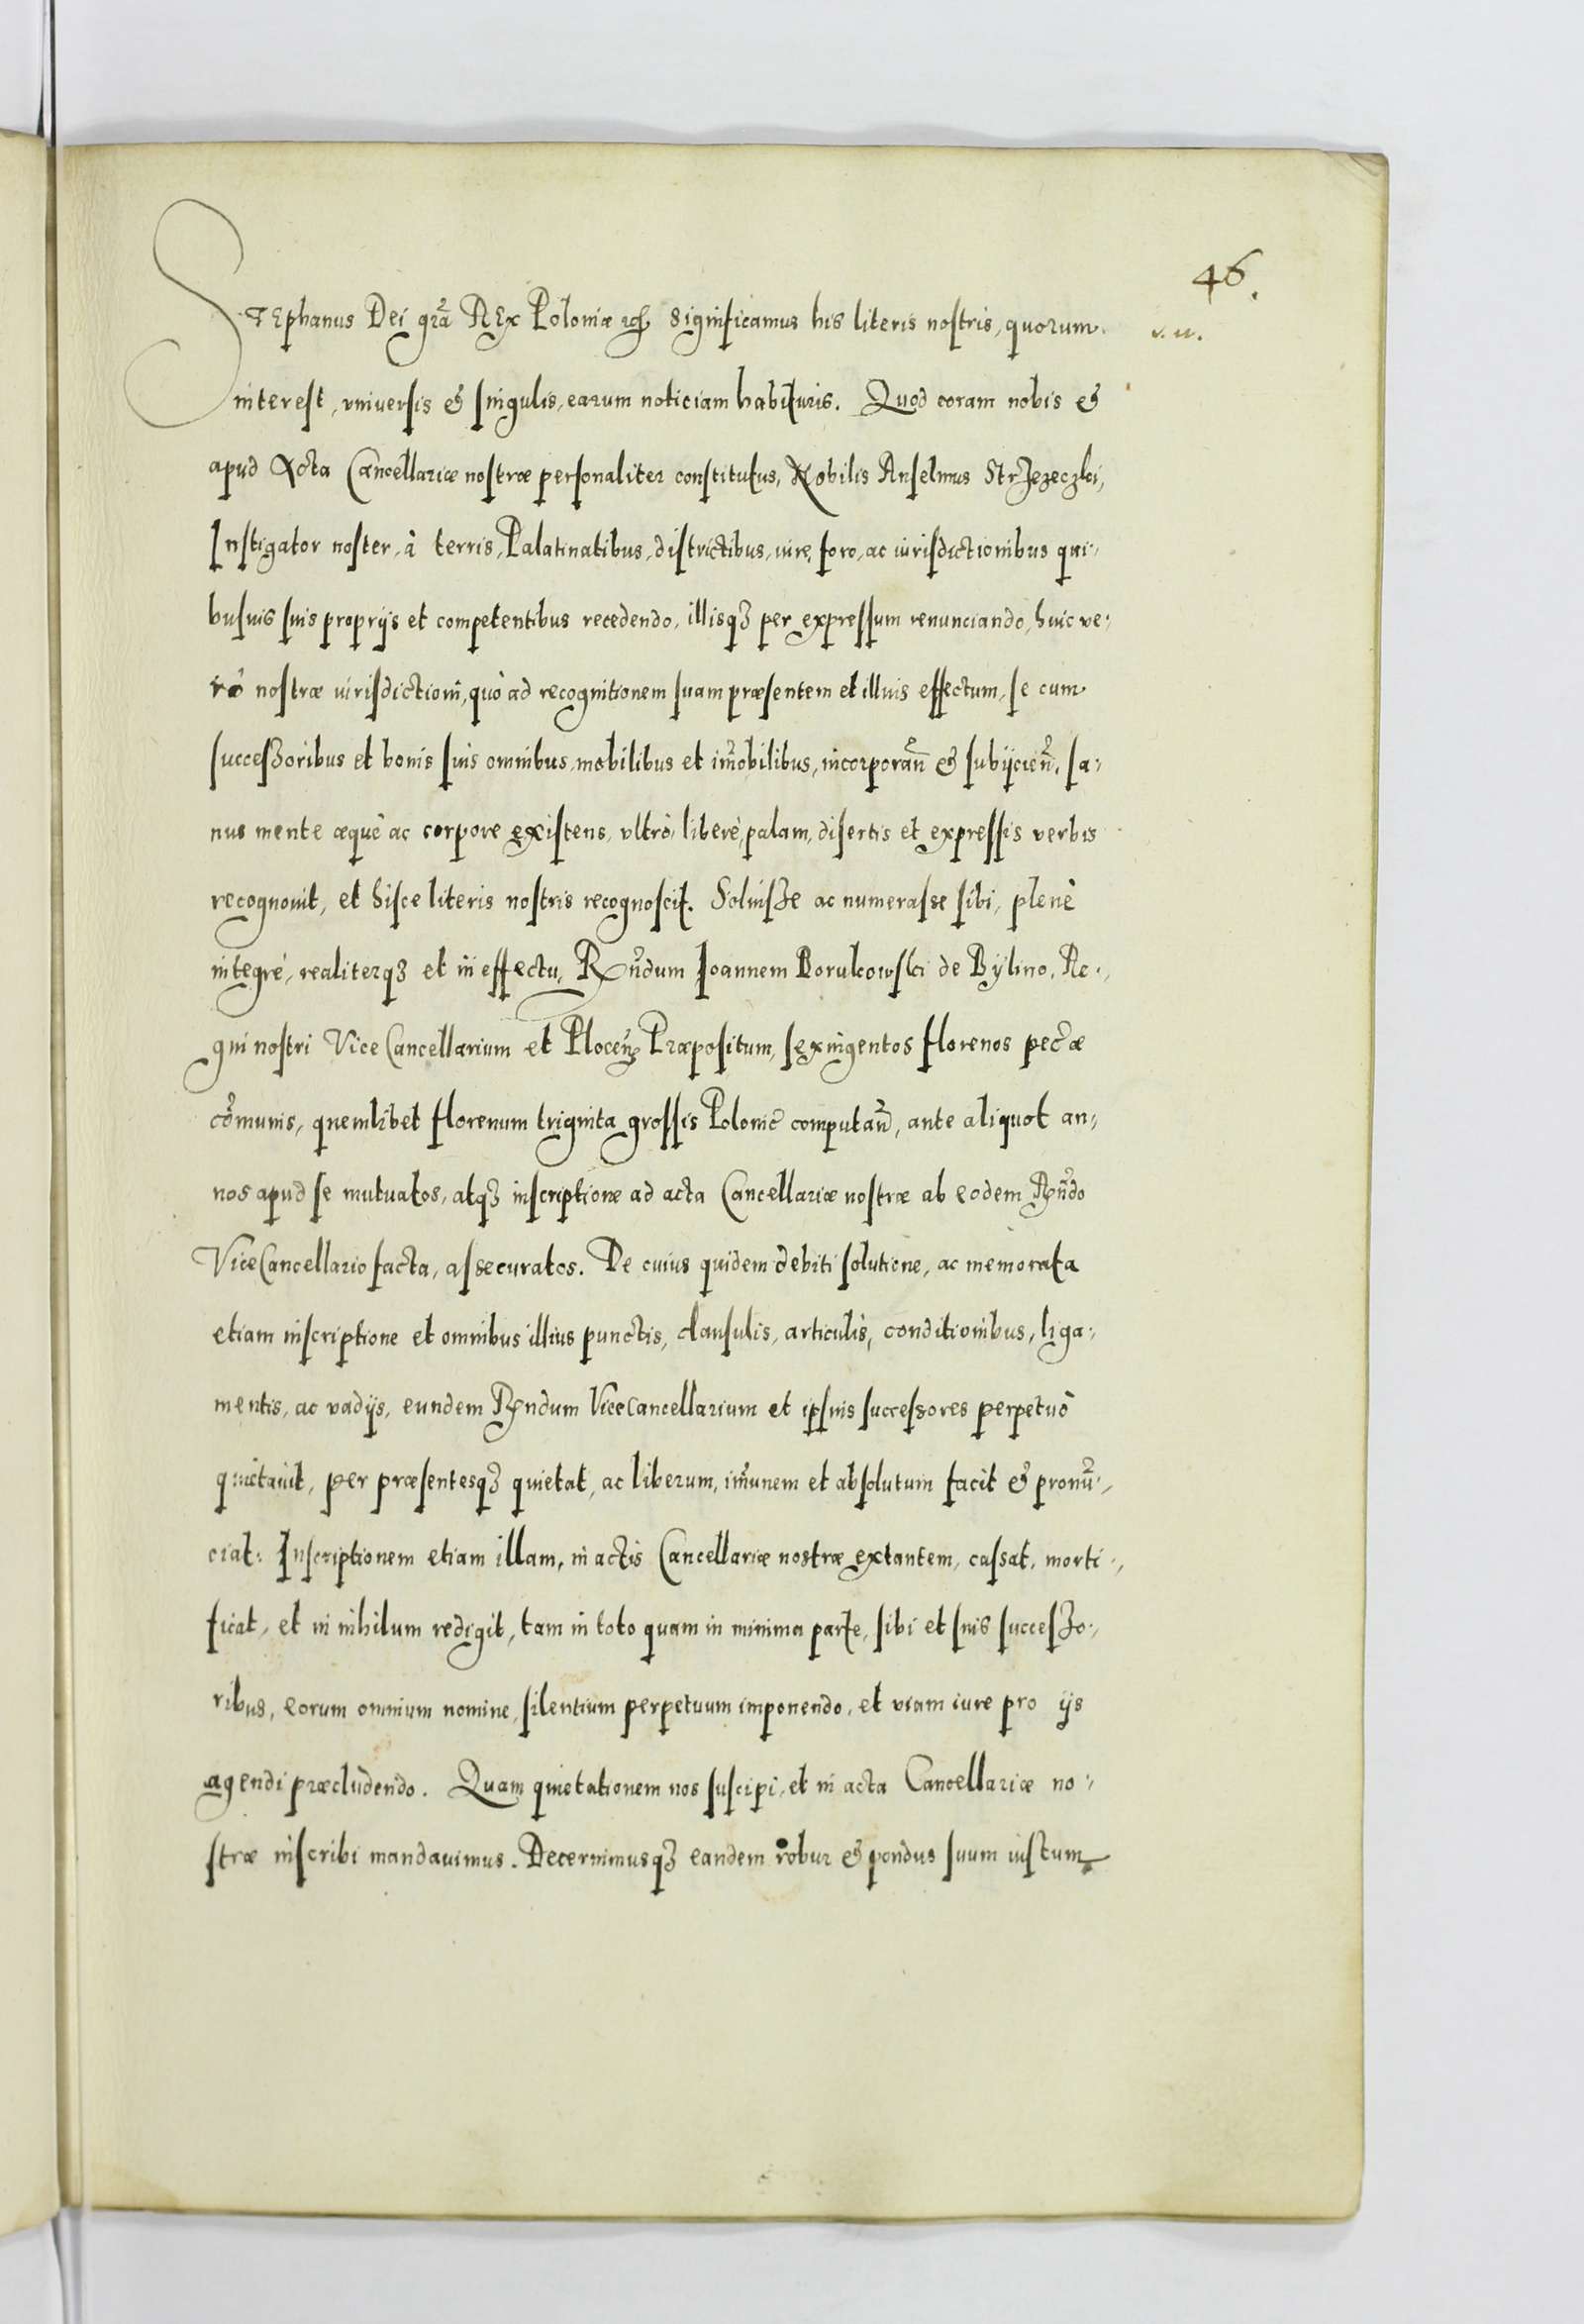 46.
STEphanus Dei gr̃a REx Poloniæ etc. Significamus his literis nostris, quorum v. n.
interest, vniuersis & singulis, earum noticiam habituris. Quod coram nobis &
apud Acta Cancellariæ nostræ personaliter constitutus, Nobilis Anselmus Strzezeczki,
Instigator noster, à terris, Palatinatibus, districtibus, iure, foro, ac iurisdictionibus qui-
busuis suis proprijs et competentibus recedendo, illisqȝ per expressum renunciando, huic ve-
rò nostræ iurisdictioni, quò ad recognitionem suam præsentem et illius effectum, se cum
successoribus et bonis suis omnibus, mobilibus et im̃obilibus, incorporan̄ & subijcien̄, sa-
nus mente æquè ac corpore existens, vltrò, liberè, palam, disertis et expressis verbis
recognouit, et hisce literis nostris recognoscit. Soluisse ac numerasse sibi, plenè
integrè, realiterqȝ et in effectu, Rñdum Ioannem Borukowski de Bÿlino, Re-
gni nostri ViceCancellarium et Plocen̄ Præpositum, sexingentos florenos pec̃æ
com̃unis, quemlibet florenum triginta grossis Polonic̃ computan̄, ante aliquot an-
nos apud se mutuatos, atqȝ inscriptione ad acta Cancellariæ nostræ ab eodem Rñdo
ViceCancellario facta, assecuratos. De cuius quidem debiti solutione, ac memorata
etiam inscriptione et omnibus illius punctis, clausulis, articulis, conditionibus, liga-
mentis, ac vadijs, eundem Rndum ViceCancellarium et ipsius successores perpetuò
quietauit, per præsentesqȝ quietat, ac liberum, im̃unem et absolutum facit & pronũ-
ciat: Inscriptionem etiam illam, in actis Cancellariæ nostræ extantem, cassat, morti-
ficat, et in nihilum redigit, tam in toto quam in minima parte, sibi et suis successo-
ribus, eorum omnium nomine, silentium perpetuum imponendo, et viam iure pro ijs
agendi præcludendo. Quam quietationem nos suscipi, et in acta Cancellariæ no-
stræ inscribi mandauimus. Decernimusqȝ eandem robur & pondus suum iustum